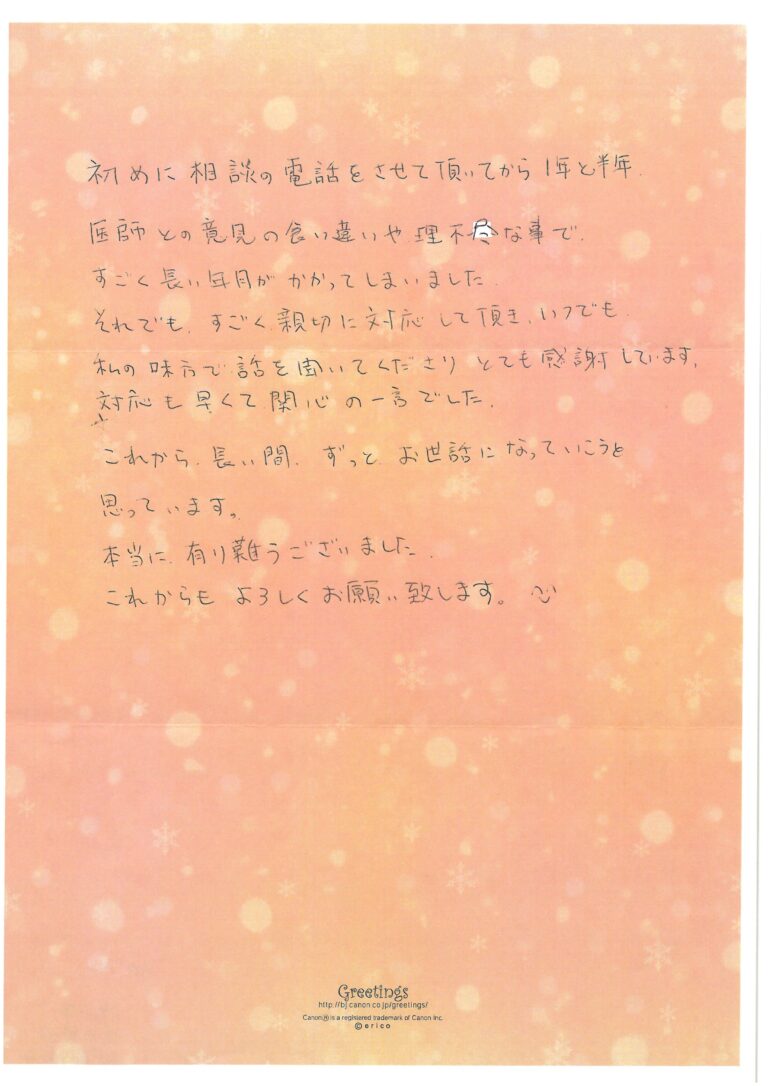 初めに相談の電話をさせて頂いてから1年と半年.
医師との意見の食い違いや理不尽な事で.
すごく長い年月がかかってしまいました.
それでも、すごく親切に対応して頂き、いつでも
私の味方で話を聞いてくださりとても感謝しています.
対応も早くて関心の一言でした.
これから、長い間、ずっと、お世話になっていこうと
思っています。
本当に、有り難うございました.
これからもよろしくお願い致します。
Greetings
http://bj.canon.co.jp/greetings/
Canon® is a registered trademark of Canon Inc.
©erico